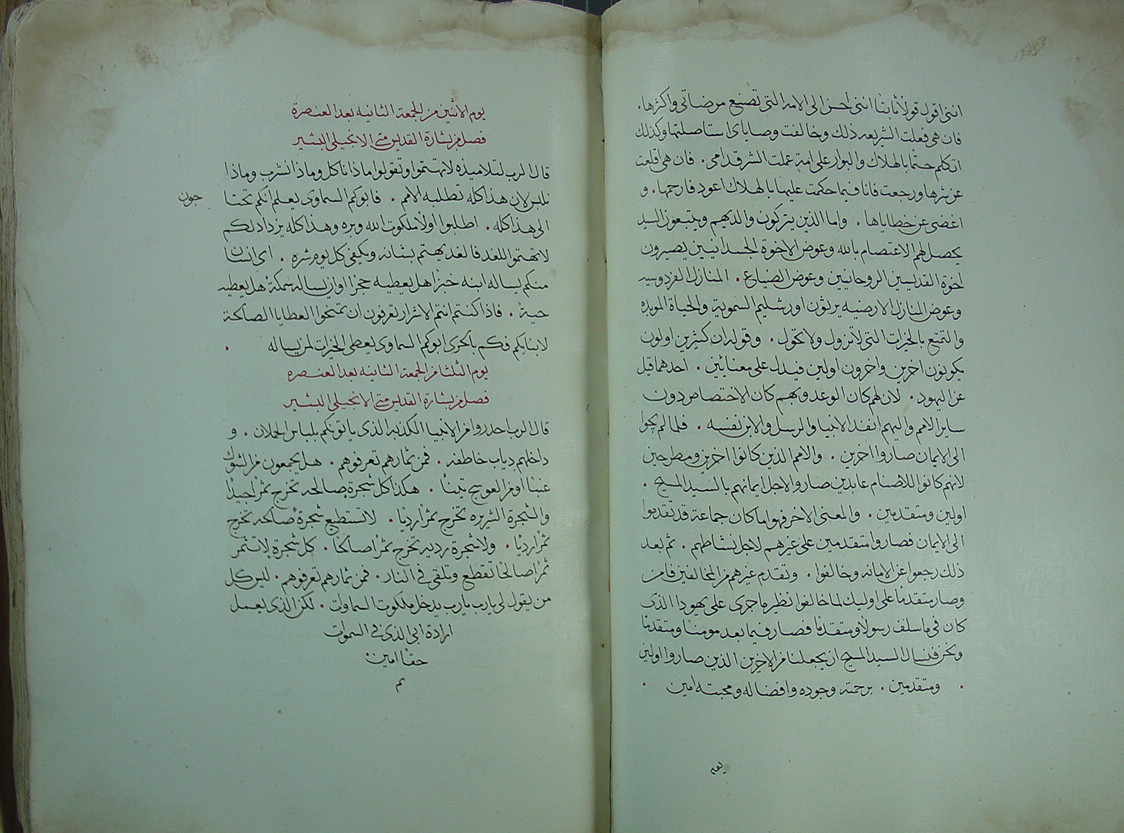 انني اقول قولا ثابتا انني احسن الى الامه التي تصنع مرضاتي واكرمها.
فان هي فعلت الشر بعد ذلك وخالفت وصاياي استاصلتها وكذلك
اتكلم حتما بالهلاك والبوار على امة عملت الشر قدامي . فان هي اقلعت
عن شرها ورجعت فانا فيما حكمت عليها بالهلاك اعود فارحمها . و
اغضي عن خطاياها . واما الذين يتركون والديهم ويتبعون السيد
يحصل لهم الاعتصام بالله وعوض الاخوة الجسدانيين يصيرون
اخوة القديسين الروحانيين وعوض الضياع . المنازل الفردوسيه
وعوض المنازل الارضيه يرثون اورشليم السمويه والحياة الموبده
والتمتع بالخيرات التي لا تزول ولا تحول . وقوله ان كثيرين اولون
يكونون اخرين واخرون اولين فيدل على معنايين . احدهما قيل
عن اليهود . لان لهم كان الوعد وبهم كان الاختصاص دون
ساير الامم واليهم انفذ الانبيا والرسل والابن نفسه . فلما لم
الى الايمان صاروا اخرين . والامم الذين كانوا اخرين ومطرحين
لانهم كانوا للاصنام عابدين صاروا لاجل ايمانهم بالسيد المسيح .
اولين ومتقدمين . والمعنى الاخر فهو اما كان جماعة قد تقدموا
الى الايمان فصاروا متقدمين على غيرهم لاجل نشاطهم . ثم بعد
ذلك رجعوا عن الامانه وخالفوا . وتقدم غيرهم من المخالفين فامن
وصار متقدما على اوليك لما خالفوا نظير ما جرى على يهودا الذي
كان في ما سلف رسولا ومتقدما فصار فيما بعد مومنا ومتقدما
ونحن فنسال السيد المسيح ان يجعلنا من الاخرين الذين صاروا اولين
. ومتقدمين . برحمته وجوده وافضاله ومحبته امين .
يوم
يوم الاثنين من الجمعة الثانيه بعد العنصرة
فصل من بشارة القديس متى الانجيلي البشير
قال الرب لتلاميذه لا تهتموا وتقولوا ماذا ناكل وماذا نشرب وماذا
نلبس لان هذا كله تطلبه الامم . فابوكم السماوي يعلم انكم تحتا
جون
الى هذا كله . اطلبوا اولا ملكوت الله وبره وهذا كله يزداد لكم
لا تهتموا للغد فالغد يهتم بشانه ويكفي كل يوم شره . اي انسان
منكم يساله ابنه خبزا هل يعطيه حجرا او ان يساله سمكة هل يعطيه
حية . فاذا كنتم انتم الاشرار تعرفون ان تمنحوا العطايا الصالحة
لابنايكم فكم بالحري ابوكم السماوي يعطي الخيرات لمن يساله .
يوم الثلثا من الجمعة الثانيه بعد العنصره
فصل من بشارة القديس متى الانجيلي البشير
قال الرب احدروا من الانبيا الكذبه الذي ياتونكم بلباس الحملان . و
داخلهم دياب خاطفه . فمن ثمارهم تعرفوهم . هل يجمعون من الشوك
عنبا او من العوسج تينا . هكذا كل شجرة صالحه تخرج ثمرا جيدا
والشجرة الشريره تخرج ثمرا رديا . لا تستطيع شجرة صالحه تخرج
ثمرا رديا . ولا شجرة رديه تخرج ثمرا صالحا . كل شجرة لا تثمر
ثمرا صالحا تقطع وتلقى في النار . فمن ثمارهم تعرفوهم . ليس كل
من يقول لي يا رب يا رب يدخل ملكوت السماوات . لكن الذي يعمل
ارادة ابي الذي في السموات
حقا امين.
تم